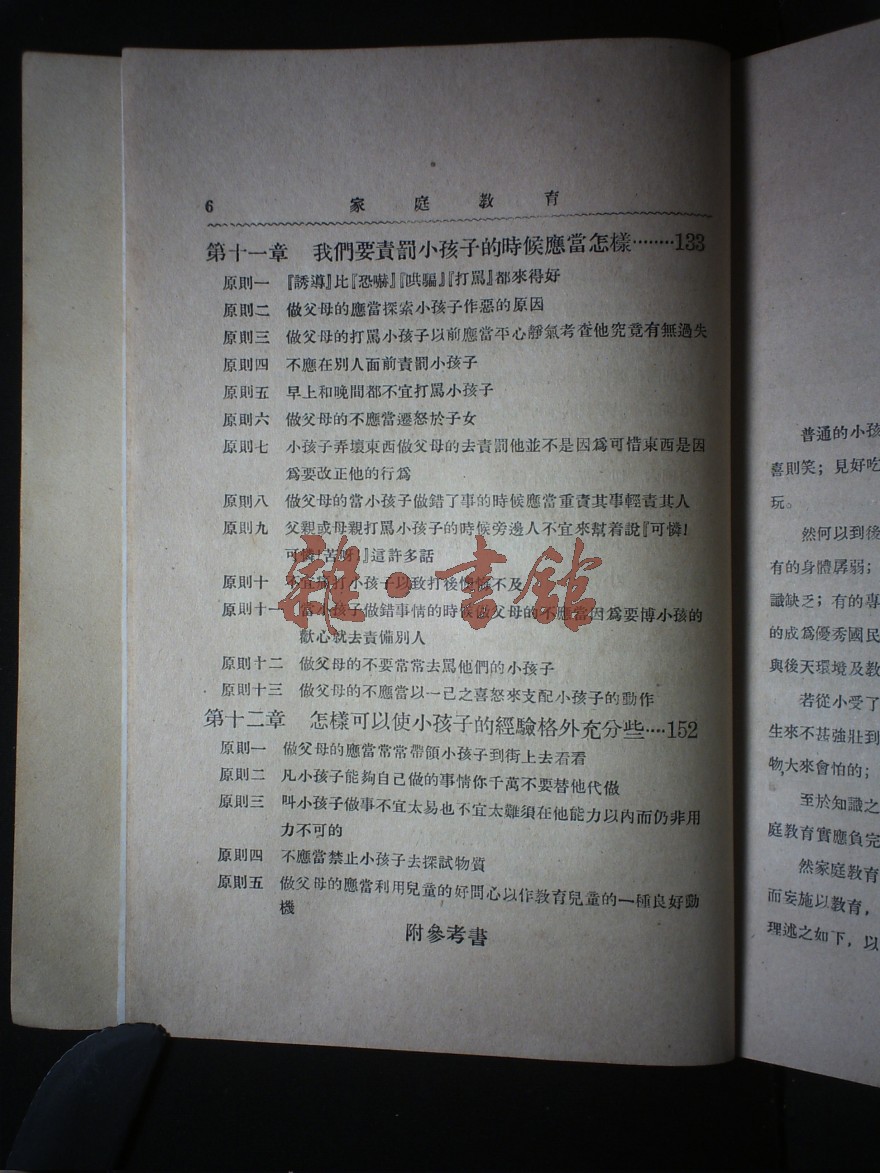 6 家庭教育
第十一章 我們要責罰小孩子的時候應當怎樣········133
原則一 『誘導』比『恐嚇』『哄騙』『打罵』都來得好
原則二 做父母的應當探索小孩子作惡的原因
原則三 做父母的打罵小孩子以前應當平心靜氣考查他究竟有無過失
原則四 不應在別人面前責罰小孩子
原則五 早上和晚間都不宜打罵小孩子
原則六 做父母的不應當遷怒於子女
原則七 小孩子弄壞東西做父母的去責罰他並不是因爲可惜東西是因
爲要改正他的行爲
原則八 做父母的當小孩子做錯了事的時候應當重責其事輕責其人
原則九 父親或母親打罵小孩子的時候旁邊人不宜來幫着說『可憐!
可憐!苦呀!』這許多話
原則十 不宜痛打小孩子以致打後懊悔不及
原則十一 當小孩子做錯事情的時候做父母的不應當因爲要博小孩的
歡心就去責備別人
原則十二 做父母的不要常常去罵他們的小孩子
原則十三 做父母的不應當以一己之喜怒來支配小孩子的動作
第十二章 怎樣可以使小孩子的經驗格外充分些····152
原則一 做父母的應當常常帶領小孩子到街上去看看
原則二 凡小孩子能夠自己做的事情你千萬不要替他代做
原則三 叫小孩子做事不宜太易也不宜太難須在他能力以內而仍非用
力不可的
原則四 不應當禁止小孩子去探試物質
原則五 做父母的應當利用兒童的好問心以作教育兒童的一種良好動
機
附參考書
雜·書館
普通的小孩
喜則笑；見好吃
玩。
然何以到後
有的身體孱弱；
識缺乏；有的專
的成爲優秀國民
與後天環境及教
若從小受了
生來不甚強壯到
物大來會怕的；
至於知識之
庭教育實應負完
然家庭教育
而妄施以教育，
理述之如下，以